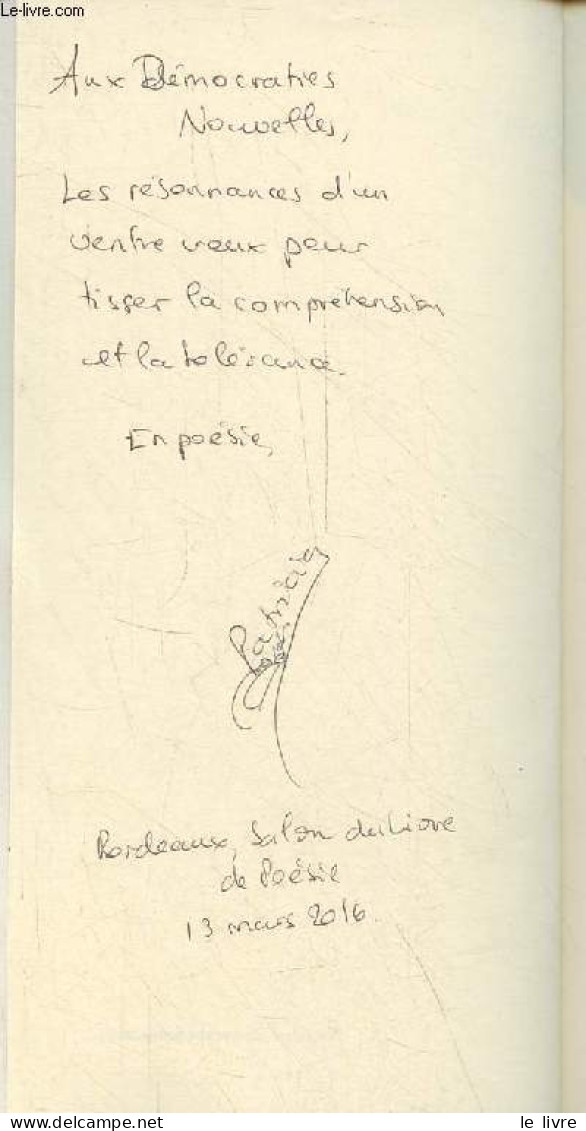 Le-livre.com
Aux Démocraties
Nouvelles,
Les résonnances d'un
ventre vœux pour
tisser la compréhension
et la tolérance.
En poésie,
Patricia
Bordeaux, Salon du Livre
de Poésie
13 mars 2016.
le livre